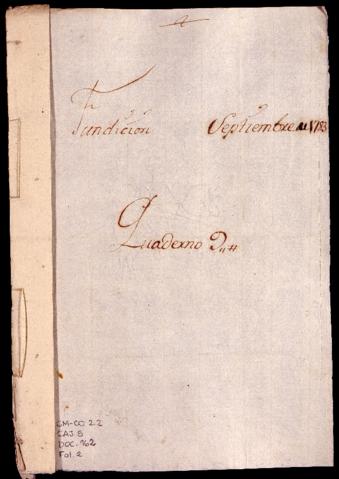 Fundicion Septiembre de 1783
Quaderno 2,,
CM-CO 2.2
CAJ. 8
DOC. 162
Fol. 2